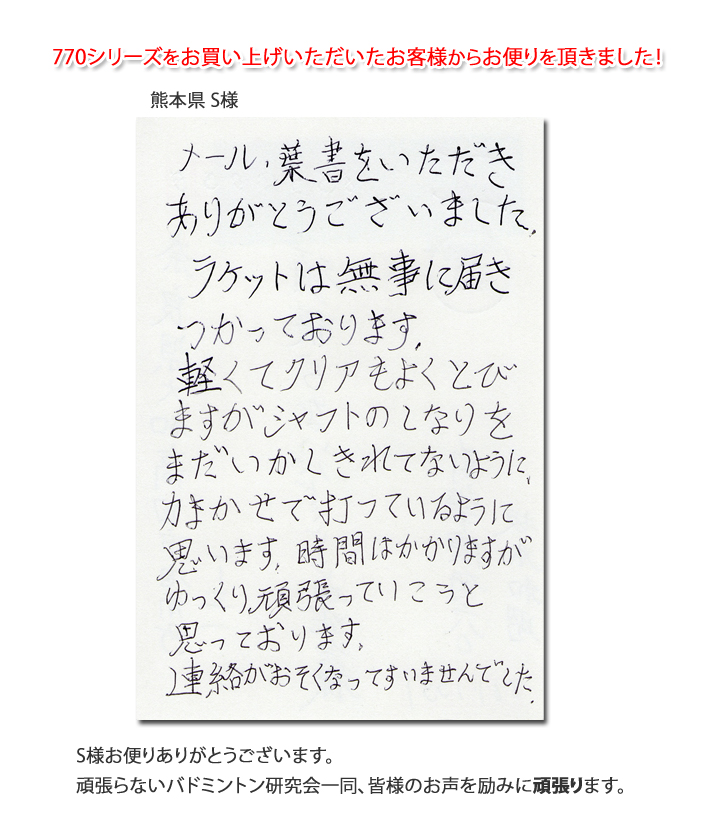 770シリーズをお買い上げいただいたお客様からお便りを頂きました!
熊本県 S様
メール、葉書をいただき
ありがとうございました。
ラケットは無事に届き
つかっております。
軽くてクリアもよくとび
ますがシャフトのしなりを
まだいかしきれてないように、
力まかせで打っているように
思います。時間はかかりますが
ゆっくり、頑張っていこうと
思っております。
連絡がおそくなってすいませんでした。
S様お便りありがとうございます。
頑張らないバドミントン研究会一同、皆様のお声を励みに頑張ります。